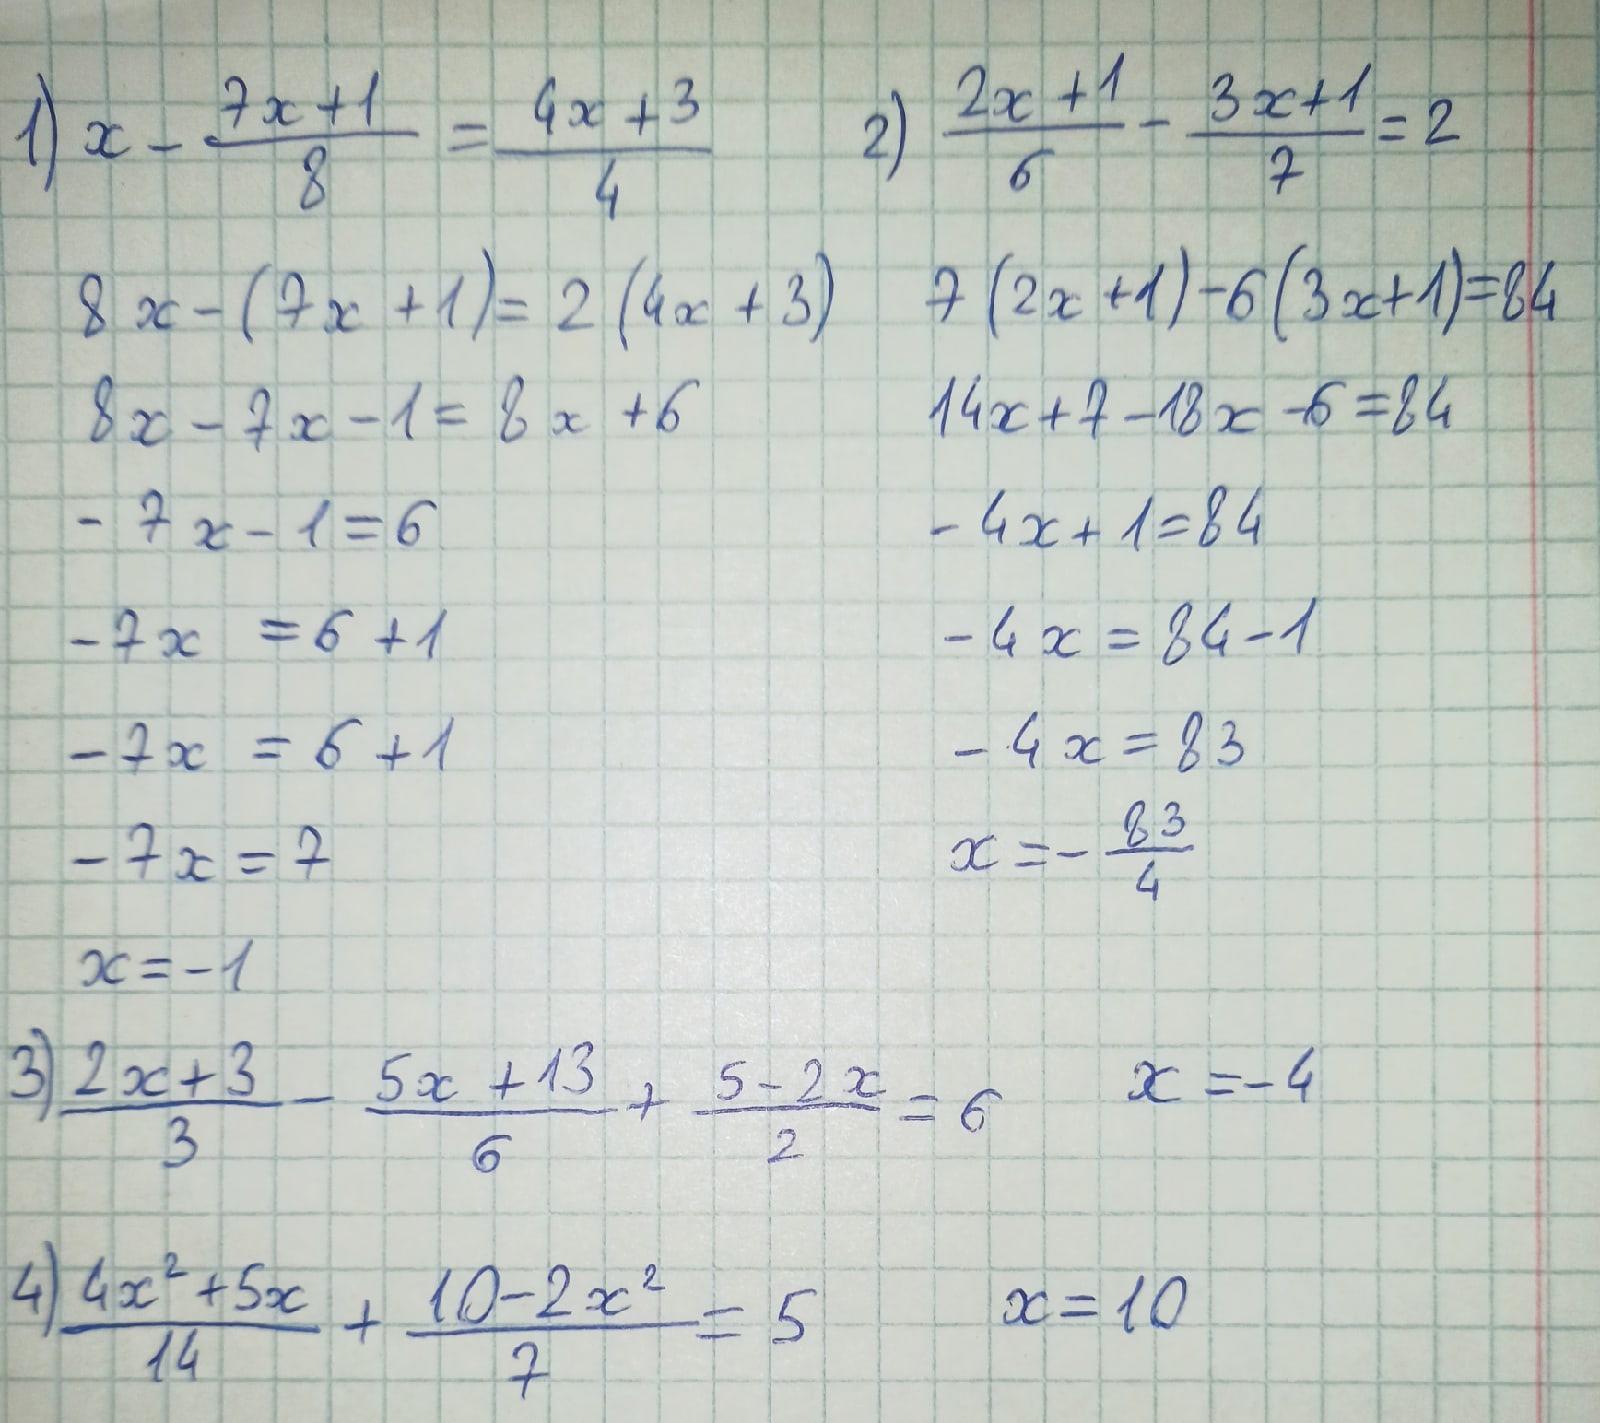 1) x - (7x+1)/8 = (4x+3)/4
8x-(7x+1)=2(4x+3)
8x-7x-1=8x+6
-7x-1=6
-7x =6+1
-7x =6+1
-7x=7
x=-1
2) (2x+1)/6 - (3x+1)/7 = 2
7(2x+1)-6(3x+1)=84
14x+7-18x-6=84
-4x+1=84
-4x=84-1
-4x=83
x=-83/4
3) (2x+3)/3 - (5x+13)/6 + (5-2x)/2 = 6 x=-4
4) (4x²+5x)/14 + (10-2x²)/7 = 5 x=10